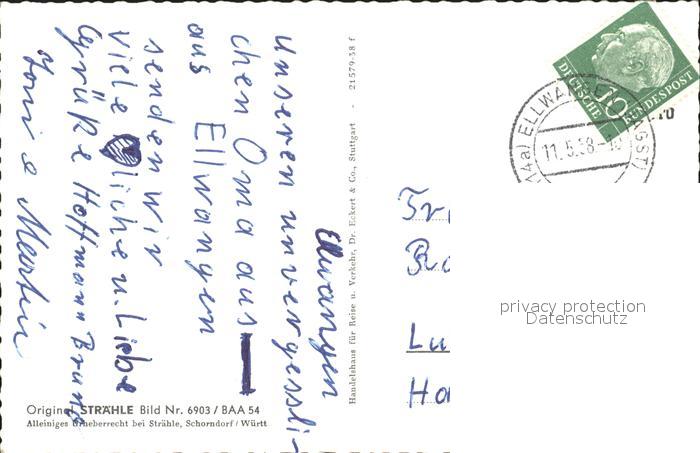 Ellwangen
unseren unvergessli-
chen Oma aus
aus Ellwangen
senden wir
viele liche u. Liebe
Grüße Hoffmann Bruno
Martin
Handelshaus für Reise u. Verkehr, Dr. Eckert & Co., Stuttgart - 21579-58 f
Original STRÄHLE Bild Nr. 6903 / BAA 54
Alleiniges Urheberrecht bei Strähle, Schorndorf / Württ
DEUTSCHE BUNDESPOST
10
(14a) ELLWANGEN (JAGST)
11.5.58
privacy protection
Datenschutz